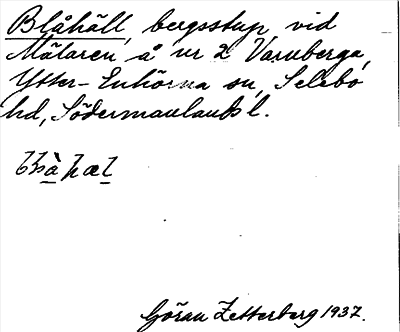 Blåhäll, bergsstup vid
Mälaren å nr 2 Varuberga,
Ytter-Enhörna sn, Selebo
hd, Södermanlands l.
Göran Zetterberg 1937.